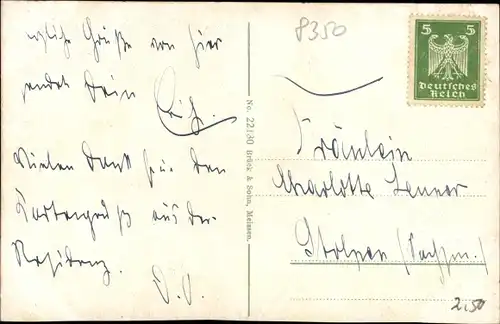 8350
5 5
Deutsches
Reich
rzliche Grüße von hier
sendet Dein
Erich.
Vielen Dank für den
Kartengruß aus der
Residenz.
D. O.
No. 22130 Brück & Sohn, Meissen.
Fräulein
Charlotte Lenner
Stolpen (Sachsen.)
2,50